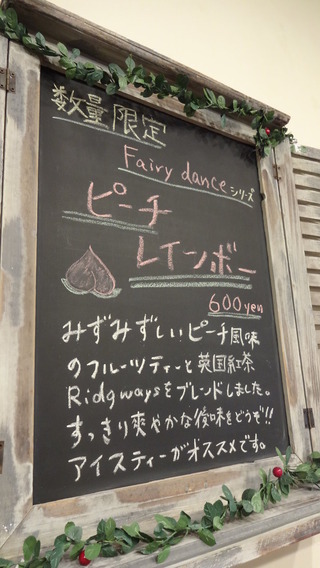 数量限定
Fairy danceシリーズ
ピーチ
レインボー
600yen
みずみずしいピーチ風味
のフルーツティーと英国紅茶
Ridgwaysをブレンドしました。
すっきり爽やかな後味をどうぞ!!
アイスティーがオススメです。